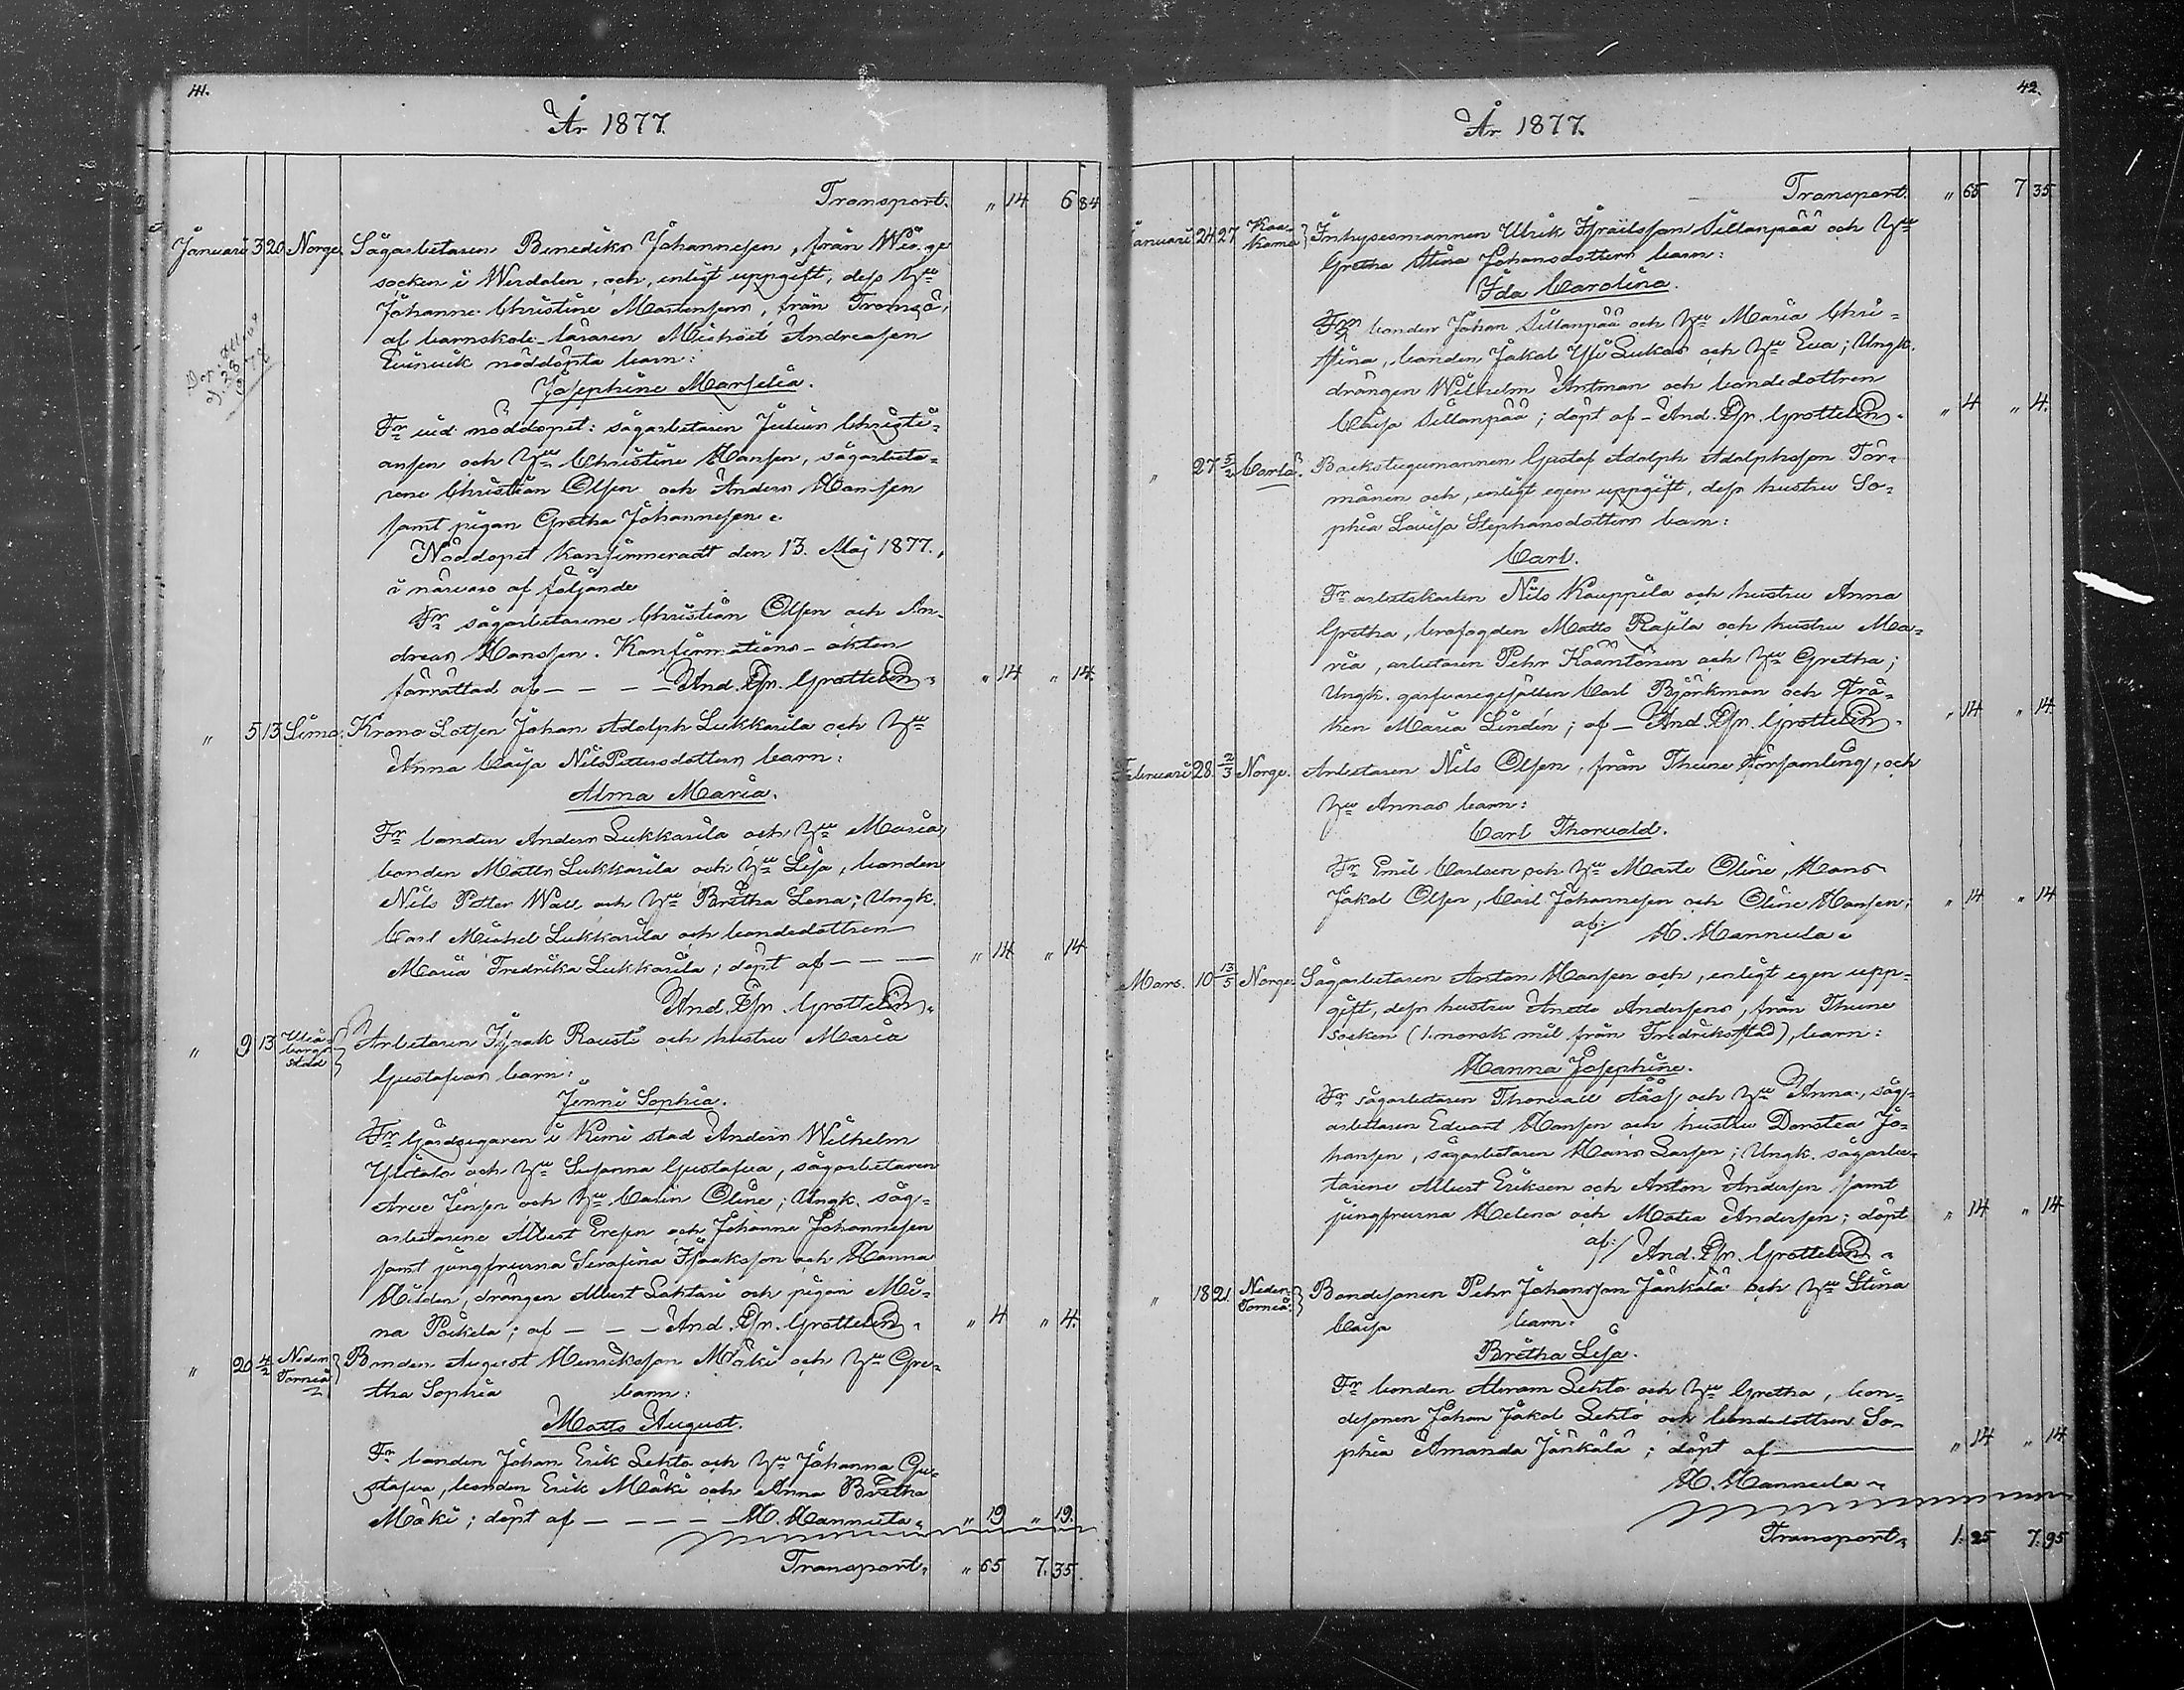 41.
År 1877.
Transport. " 14 6 84
Januari 3 20 Norge. Sågarbetaren Benedikt Johannesen, från
socken i Werdalen, och, enligt uppgift, dess Hu
Johanne Christine Martensens, från Tromsö,
af barnskole-läraren Michael Andreasen
nöddöpta barn:
Josephine Marselia.
Fr vid nöddopet: sågarbetaren Julius Christi=
ansen och Hu Christine Hansen, sågarbeta=
rene Christian Olsen och Anders Hansen
samt pigan Gretha Johannesen.
Nöddopet konfirmeradt den 13. Maj 1877.,
i närvaro af följande
Fr sågarbetarene Christian Olsen och An-
dreas Hanssen. Konfirmations-akten
förrättad af — — — And. Joh. Grottelin. " 14 " 14.
" 5 13 Simo. Krono Lotsen Johan Adolph Lukkarila och Hu
Anna Caisa Nils Pettersdotters barn:
Alma Maria.
Fr bonden Anders Lukkarila och Hu Maria,
bonden Matts Lukkarila och Hu Lisa, bonden
Nils Petter Wall och Hu Bretha Lena; Ungk.
Carl Michel Lukkarila och bondedottren
Maria Fredrika Lukkarila; döpt af — — — " 14 " 14
And. Joh. Grottelin.
" 9 13 Uleå=
borgs
stad Arbetaren Isaak Rousti och hustru Maria
Gustafvas barn:
Jenni Sophia.
Fr Gårdsegaren i Kemi stad Anders Wilhelm
Ylitalo och Hu Susanna Gustafva, sågarbetaren
Arve Jensen och Hu Carin Oline; Ungk. såg=
arbetarene Albert Eresen och Johanne Johannesen
samt jungfrurna Serafina Isaaksson och Hanna
Hilden, drängen Albert Laktari och pigan Mi=
na Poikela; af — — — And. Joh. Grottelin. " 4 " 4.
" 20 4/2 Neder
Torneå Bonden August Henriksson Mäki och Hu Gre=
tha Sophia barn:
Matts August.
Fr bonden Johan Erik Lehto och Hu Johanna Gu=
stafva, bonden Erik Mäki och Anna Bretha
Mäki; döpt af — — — — H. Hannula. " 19 " 19.
Transport. " 65 7. 35.
42.
År 1877.
Transport. " 65 7 35.
Januari 24 27 Kaa=
kama Inhysesmannen Ulrik Israelsson Sillanpää och Hu
Gretha Stina Johansdotters barn:
Ida Carolina.
Frr bonden Johan Sillanpää och Hu Maria Chri=
stina, bonden Jakob Yli Lukas och Hu Eva; Ungk.
drängen Wilhelm Antman och bondedottren
Caisa Sillanpää; döpt af — And. Joh. Grottelin. " 4 " 4.
" 27 5/2 Carlö. Backstugumannen Gustaf Adolph Adolphsson Tör=
mänen och, enligt egen uppgift, dess hustru So=
phia Lovisa Stephansdotters barn:
Carl.
Fr arbetskarlen Nils Kauppila och hustru Anna
Gretha, brofogden Matts Rasila och hustru Ma=
ria, arbetaren Pehr Kääntönen och Hu Gretha;
Ungk. garfvaregesällen Carl Björkman och Frö=
ken Maria Lindén; af — And. Joh. Grottelin. " 14 " 14.
Februari 28. 2/3 Norge. Arbetaren Nils Olsen, från Thune Församling, och
Hu Annas barn:
Carl Thorvald.
Fr Emil Carlsen och Hu Marte Oline, Hans
Jakob Olsen, Carl Johannesen och Oline Hansen; " 14 " 14
af: H. Hannula.
Mars. 10 13/5 Norge. Sågarbetaren Anton Hansen och, enligt egen upp=
gift, dess hustru Anette Andersens, från Thune
socken (1. norsk mil från Fredrikstad), barn:
Hanna Josephine.
Fr sågarbetaren Thorvald Aass och Hu Anna, såg=
arbetaren Edvart Hansen och hustru Dorotea Jo=
hansen, sågarbetaren Hans Larsen; Ungk. sågarbe=
tarene Albert Eriksen och Anton Andersen samt
jungfrurna Helena och Matea Andersen; döpt " 14 " 14
af: And. Joh. Grottelin.
" 18 21. Neder
Torneå: Bondesonen Pehr Johansson Jänkälä och Hu Stina
Caisa barn:
Bretha Lisa.
Fr bonden Abram Lehto och Hu Gretha, bon=
desonen Johan Jakob Lehto och bondedottren So=
phia Amanda Jänkälä; döpt af — " 14 " 14
H. Hannula
Transport. 1. 25 7. 95